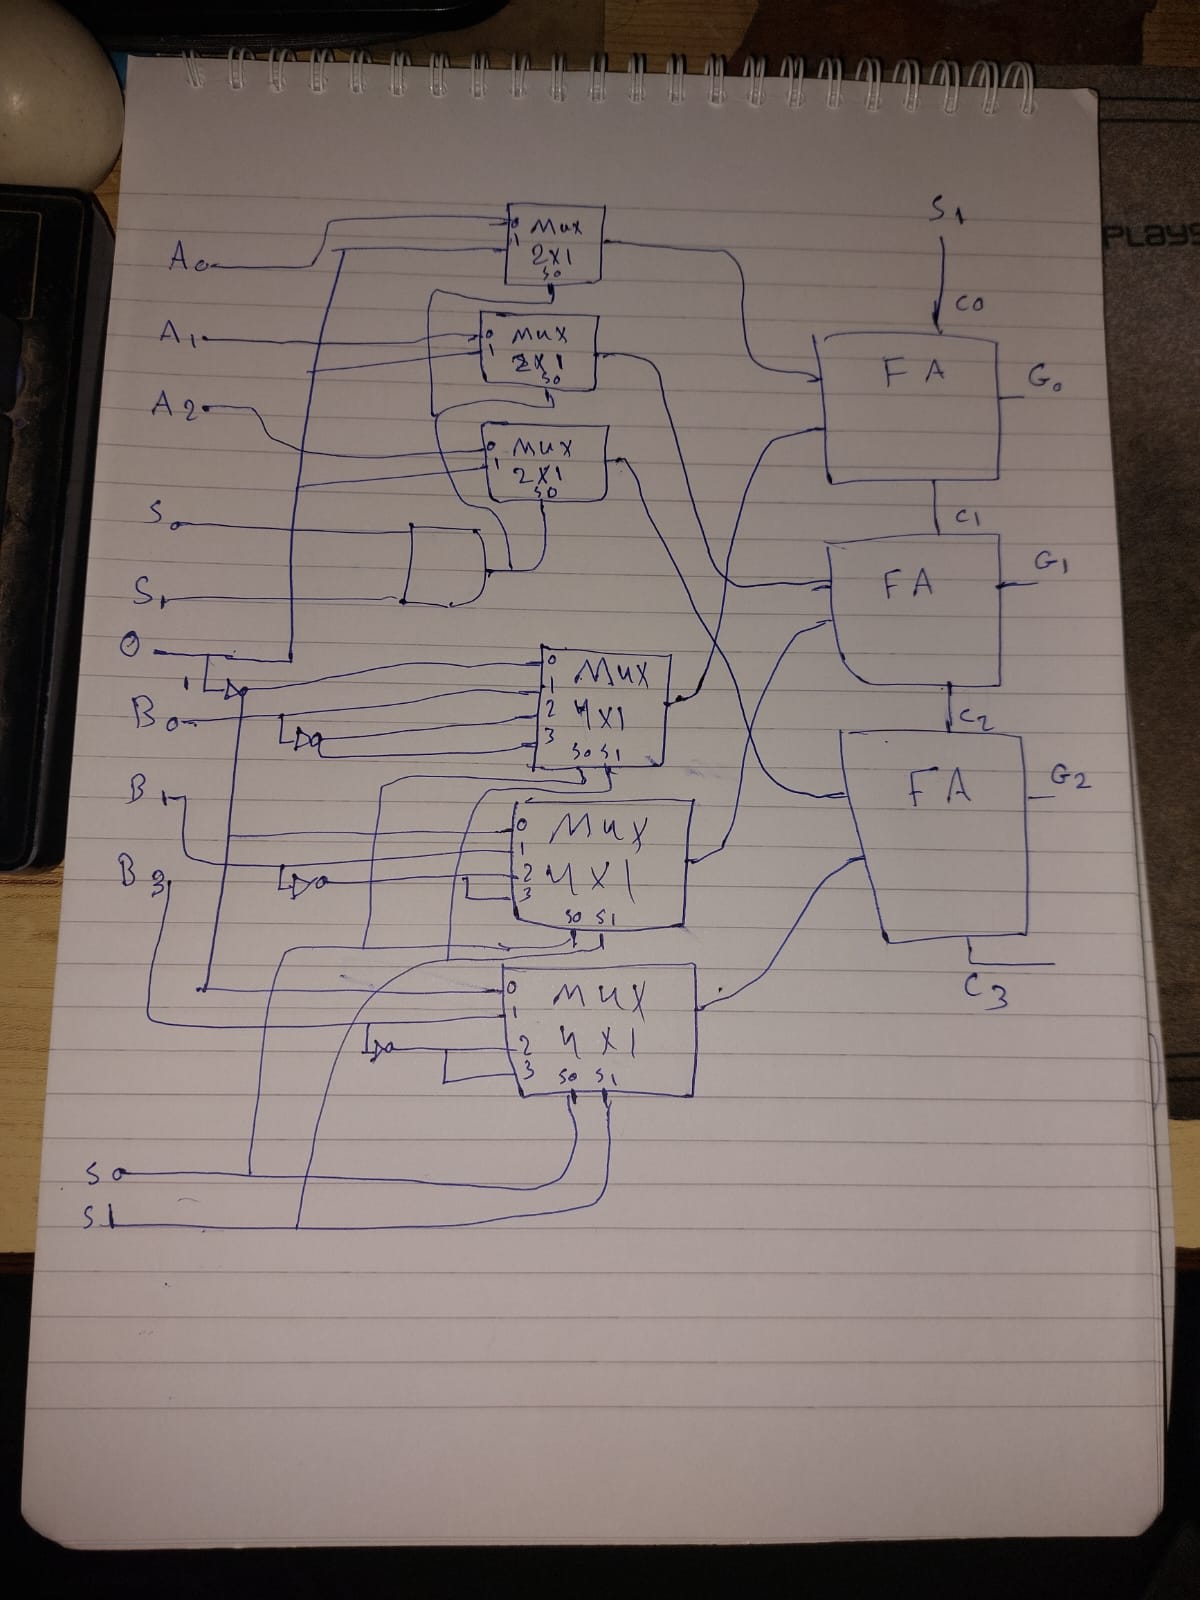 A0
A1
A2
S0
S1
0
1
B0
B1
B3
S0
S1
0
1
Mux
2X1
S0
0
1
Mux
2X1
S0
0
1
Mux
2X1
S0
0
1
2
3
Mux
4X1
S0 S1
0
1
2
3
Mux
4X1
S0 S1
0
1
2
3
Mux
4X1
S0 S1
S1
C0
FA
G0
C1
FA
G1
C2
FA
G2
C3
PLAYS